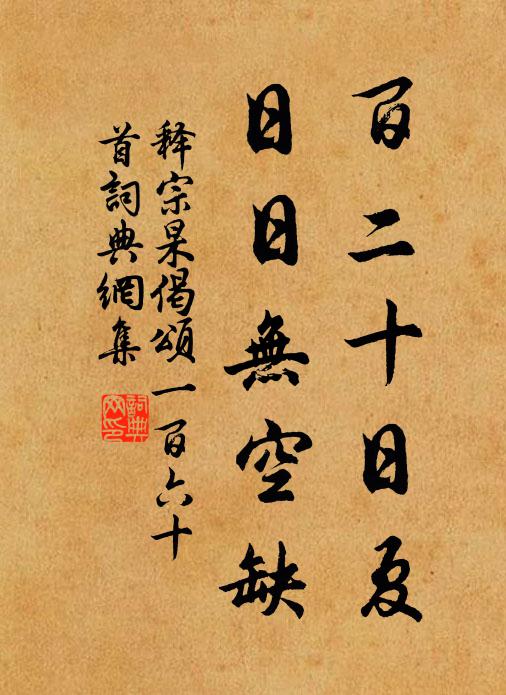 百二十日夏
日日無空缺
释宗杲偈頌一百六十
首詞典網集
詞典
网印